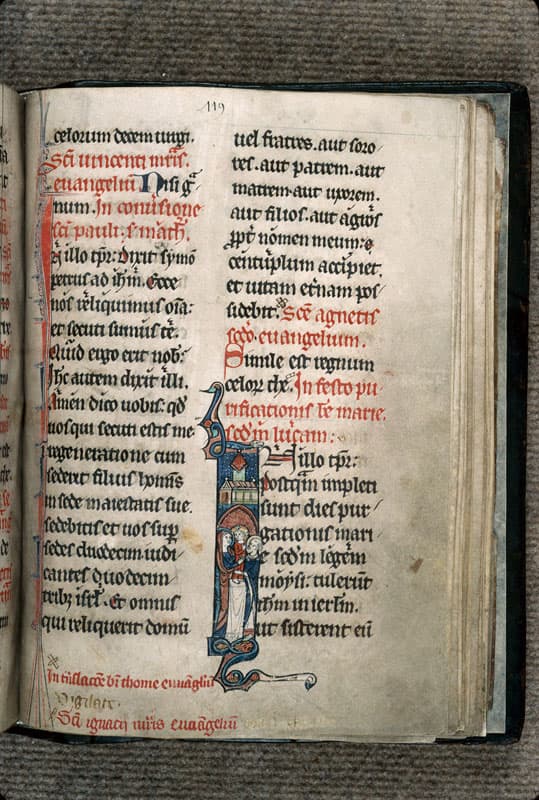 119
celorum decem uirgi.
Sc̄i uincenti mr̄is.
euangeliū Nisi g̃
num. In conuersione
sc̄i pauli. s. math̄.
In illo tp̄r: Dixit symō
petrus ad ih̄m. Ecce
nos reliquimus om̄a:
et secuti sumus te.
Quid ergo erit nob̄:
Ih̄c autem dixit illi.
Amen dico uobis: qd̄
uos qui secuti estis me
regeneratione cum
sederit filius hominis
in sede maiestatis sue.
sedebitis et uos sup̄
sedes duodecim iudi
cantes duodecim
tribꝫ isrl̄. Et omnis
qui reliquerit domū
uel fratres. aut soro
res. aut patrem. aut
matrem aut uxorem.
aut filios. aut agros
ꝓpt̄ nomen meum:
centuplum accipiet.
et uitam et̄nam pos
sidebit. Sc̄e agnetis
sc̄do. euangelium.
Simile est regnum
celoꝝ In festo pu
rificationis be marie.
sc̄dm lucam:
In illo tp̄r:
postq̄m impleti
sunt dies pur
gationis mari
e sc̄dm legem
moysi: tulerūt
ih̄m in ierl̄m.
ut sisterent eū
In tn̄slacōe bī thome euuāgliū
Vigilate.
Sc̄i ignacij mr̄is euuāngeliū